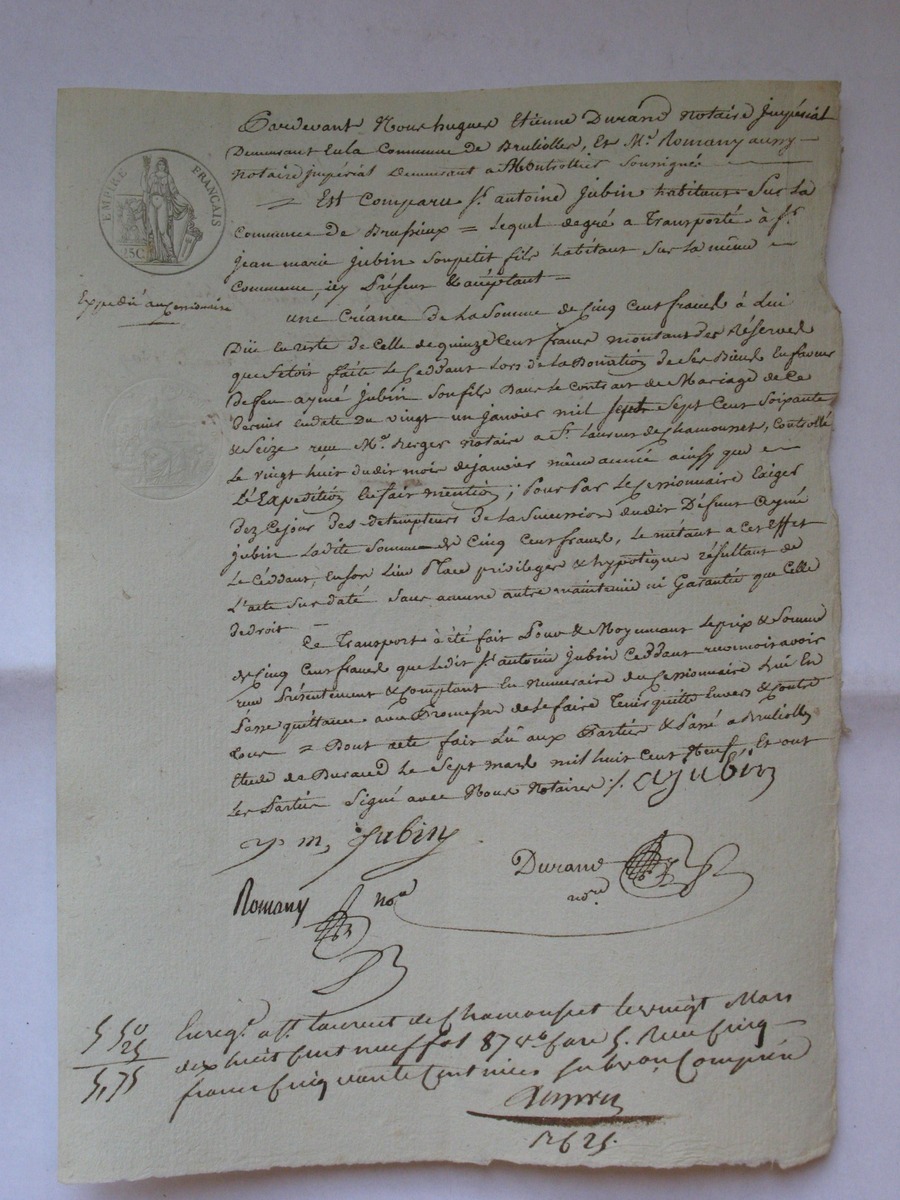 EMPIRE FRANÇAIS
75C
Expedié au Cessionaire
Pardevant Nous hugues Etienne Durand Notaire Impérial
Demeurant En la Commune de Brulioles, Et Me. Romany aussy
Notaire impérial Demeurant a Montrottier Soussignés
= Est Comparu Sr. antoine Jubin habitant Sur La
Commune De Brussieux = Lequel de gré a Transporté à Sr.
jean marie Jubin Son petit fils habitant Sur la même
Commune, icy Présent & acéptant =
une Créance de La Somme de Cinq Cent francs à Lui
Düe En reste de Celle de quinze Cent francs montant des Réserves
que S'etoit faite Le Ceddant Lors de La Donation de Ses Biens En faveur
De feu aymé Jubin Son fils Dans Le Contract de Mariage de Ce
Dernier En date du vingt un janvier mil Sept Cent Soixante
& Seize reçu Me. Berger Notaire a St. Laurent de Chamousset, Controllé
Le vingt huit du dit mois de janvier même année ainssy que
L'Expedition En fait mention; Pour Par Le Cessionnaire Exiger
Dez Ce jour des détempteurs de La Succession du dit Défunt aymé
Jubin Ladite Somme de Cinq Cent francs, Le métant a Cet Effet
Le Céddant, En Son Lieu Place privileges & hypotéques résultant de
L'acte Sus daté Sans aucune autre maintenüe ni Garantée que Celle
de droit =
Ce Transport à été fait Pour & Moyennant Le prix & Somme
de Cinq Cent francs que Ledit Sr. antoine Jubin Ceddant reconnoit avoir
reçu Présentement & Comptant En Numeraire du Cessionnaire Lui En
Passe quittance avec Promesse de Le faire Tenir quitte Envers & Contre
tous = Dont acte fait Lû aux Parties & Passé a Brulioles
Etude de Durand Le Sept mars mil huit Cent Neuf Et ont
Les Parties Signé avec Nous Notaires ./. A Jubin
J m, Jubin
Durand
nore.
Romany Nore
5 50
25
5,75
Enregé. a St. Laurent de Chamousset le vingt Mars
dix huit Cent neuf fol 87 vo. Case 5. Reçu Cinq
francs Cinquante Centimes Subvon. Comprise